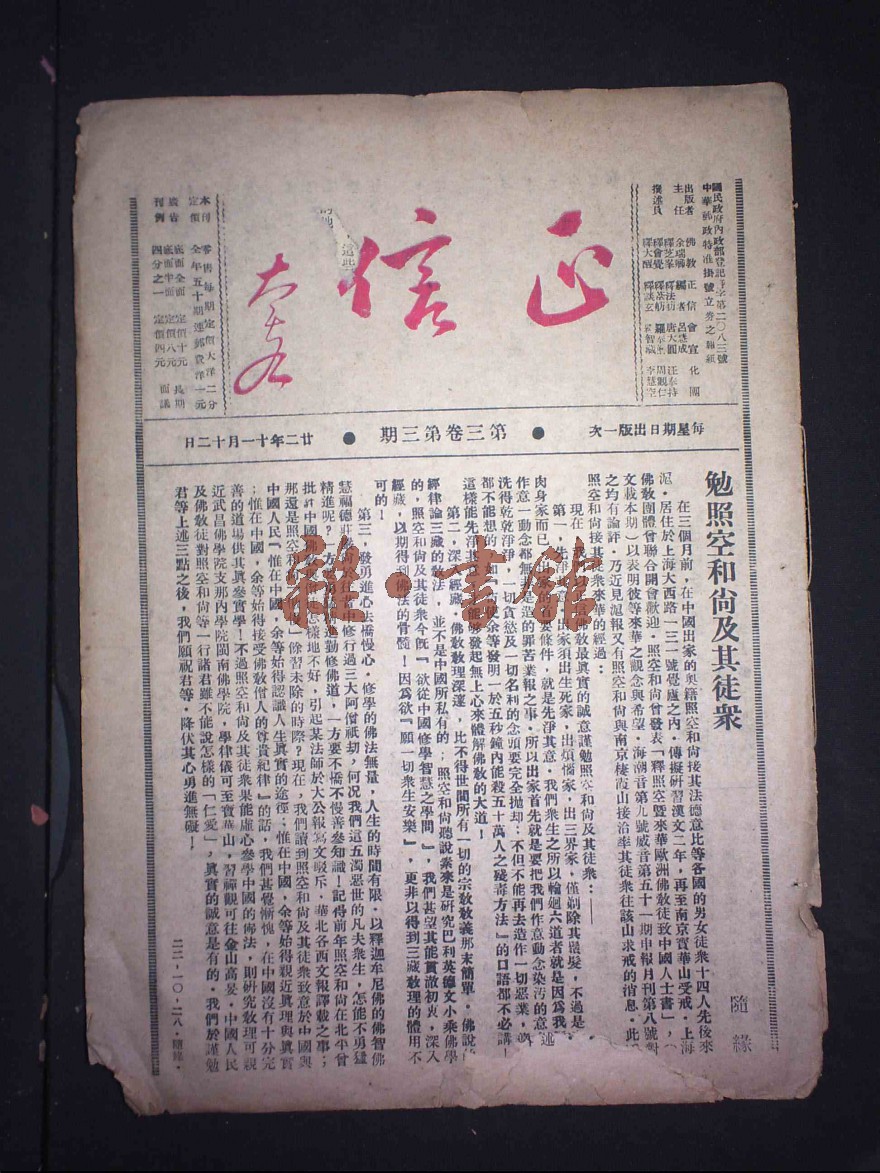 國民政府內政部登記警字第二〇八三號
中華郵政特准掛號立券之報紙
出版者 佛教正信會宣化團
正信
太虛
本刊定價 零售每期定價大洋二分
全年五十期連郵費洋一元
廣告刊例 底面全面 定價十元 長期
底面半面 定價八元 面議
四分之一 定價四元
每星期日出版一次 ● 第三卷第三期 ● 廿二年十一月十二日
勉照空和尙及其徒衆
隨緣
在三個月前，在中國出家的奧籍照空和尙接其法德意比等各國的男女徒衆十四人先後來
滬．居住於上海大西路一三一號覺廬之內．傳擬研習漢文二年，再至南京寶華山受戒．上海
佛敎團體曾聯合開會歡迎．照空和尙曾發表「釋照空暨來華歐洲佛敎徒致中國人士書」，（
文載本期）以表明彼等來華之觀念與希望．海潮音第九號威音第五十一期申報月刊第八號對
之均有論評．乃近見滬報又有照空和尙與南京棲霞山接洽率其徒衆往該山求戒的消息．此
照空和尙接其徒衆來華的經過：
現在，我以佛敎最眞實的誠意謹勉照空和尙及其徒衆：——
第一，先淨其意 出家須出生死家，出煩惱家，出三界家，僅剃除其鬚髮，不過是
肉身家而已．出家首要條件，就是先淨其意．我們衆生之所以輪廻六道者就是因爲我
作意一動念都無不是造的罪苦業報之事．所以出家首先就是要把我們作意動念染汚的意述
洗得乾乾淨淨，一切貪慾及一切名利的念頭要完全拋却：不但不能再去造作一切惡業，
都不能想的，如「使余等發明一於五秒鐘內能殺五十萬人之殘毒方法』的口語都不必講！
這樣能先淨其意，能夠發起無上心來體解佛敎的大道！
第二，深入經藏 佛敎敎理深邃，比不得世間所有一切的宗敎敎義那末簡單．佛說
經律論三藏的敎法，並不是中國所私有的；照空和尙聽說素來是硏究巴利英德文小乘佛學
的，照空和尙及其徒衆今旣『欲從中國修學智慧之學問』，我們甚望其能貫澈初衷，深入
經藏，以期得到佛法的骨髓！因爲欲『願一切衆生安樂』，更非以得到三藏敎理的體用不
可的！
第三，發勇進心去憍慢心．修學的佛法無量，人生的時間有限．以釋迦牟尼佛的佛智佛
慧福德莊嚴尙於往昔中修行過三大阿僧祇刧，何況我們這五濁惡世的凡夫衆生，怎能不勇猛
精進呢？一方要勇猛進勤修佛道，一方要不憍不慢善參知識！記得前年照空和尙在北平曾
批評中國佛敎怎樣地不好，引起某法師於大公報寫文駁斥．華北各西文報譯載之事；
那還是照空和尙「　」餘習未除的時際？現在，我們讀到照空和尙及其徒衆致意於中國與
中國人民『惟在中國，余等始得認識人生眞實的途徑；惟在中國，余等始得親近眞理與眞實
；惟在中國，余等始得接受佛敎僧人的尊貴紀律』的話，我們甚覺慚愧，在中國沒有十分完
善的道場供其眞參實學！不過照空和尙及其徒衆果能虛心參學中國的佛法，則硏究敎理可親
近武昌佛學院支那內學院閩南佛學院，學律儀可至寶華山，習禪觀可往金山高旻．中國人民
及佛敎徒對照空和尙等一行諸君雖不能說怎樣的「仁愛」，眞實的誠意是有的．我們於謹勉
君等上述三點之後，我們願祝君等．降伏其心勇進無礙！
二二．一〇．二八．隨緣．
雜·書館